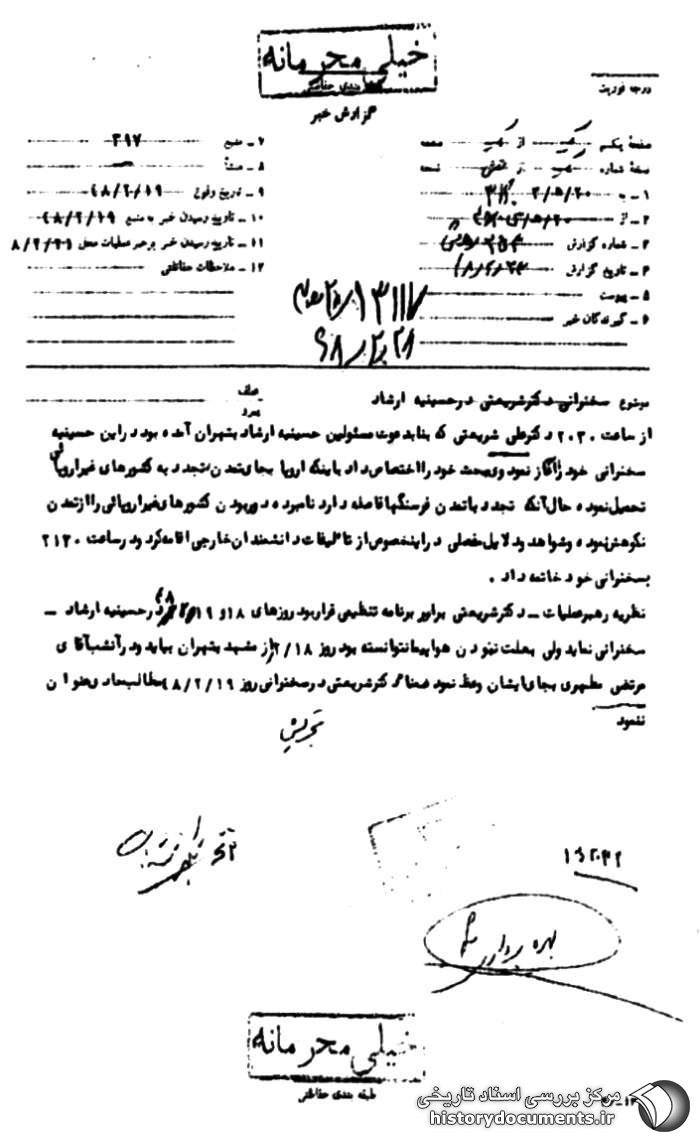 خیلی محرمانه
طبقه بندی حفاظتی
گزارش خبر
درجه فوریت
صفحه یکم از صفحه
نسخه شماره از نسخه
۱ ـ به
۲ ـ از
۳ ـ شماره گزارش
۴ ـ تاریخ گزارش
۵ ـ پیوست
۶ ـ گیرندگان خبر
۷ ـ منبع ۳۹۷
۸ ـ منشأ
۹ ـ تاریخ وقوع ۴۸/۲/۱۹
۱۰ ـ تاریخ رسیدن خبر به منبع ۴۸/۲/۱۹
۱۱ ـ تاریخ رسیدن خبر برهبر عملیات محل
۱۲ ـ ملاحظات حفاظتی
موضوع سخنرانی دکتر شریعتی در حسینیه ارشاد
از ساعت ۲۰۳۰ دکتر علی شریعتی که بنابدعوت مسئولین حسینیه ارشاد بتهران آمده بود در این حسینیه
سخنرانی خود را آغاز نمود وی بحث خود را اختصاص داد باینکه اروپا بجای تمدن، تجدد به کشورهای غیراروپائی
تحمیل نموده حال آنکه تجدد با تمدن فرسنگها فاصله دارد نامبرده دوربودن کشورهای غیراروپائی را از تمدن
نکوهش نموده و شواهد و دلایل مفصلی در اینخصوص از تالیفات دانشمندان خارجی اقامه کرد و در ساعت ۲۱۳۰
بسخنرانی خود خاتمه داد .
نظریه رهبر عملیات ـ دکتر شریعتی برابر برنامه تنظیمی قرار بود روزهای ۱۸ و ۱۹ در حسینیه ارشاد ـ
سخنرانی نماید ولی بعلت نبودن هواپیما نتوانسته بود روز ۲/۱۸ از مشهد بتهران بیاید و در آنشب آقای
مرتضی مطهری بجای ایشان وعظ نمود ضمنا دکتر شریعتی در سخنرانی روز ۴۸/۲/۱۹ مطالب حادی عنوان
ننمود
بهره برداری شد
خیلی محرمانه
طبقه بندی حفاظتی
مرکز بررسی اسناد تاریخی
historydocuments.ir